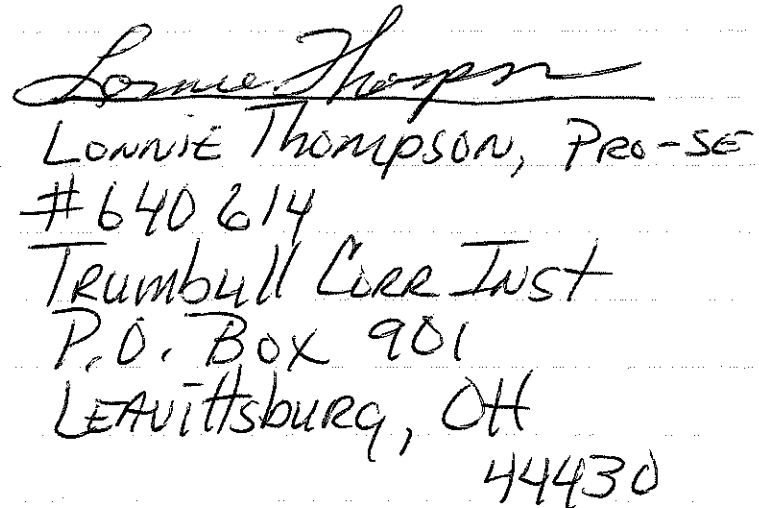 Lonnie Thompson
Lonnie Thompson, Pro-se
#640614
Trumbull Corr Inst
P.O. Box 901
Leavittsburg, OH
44430